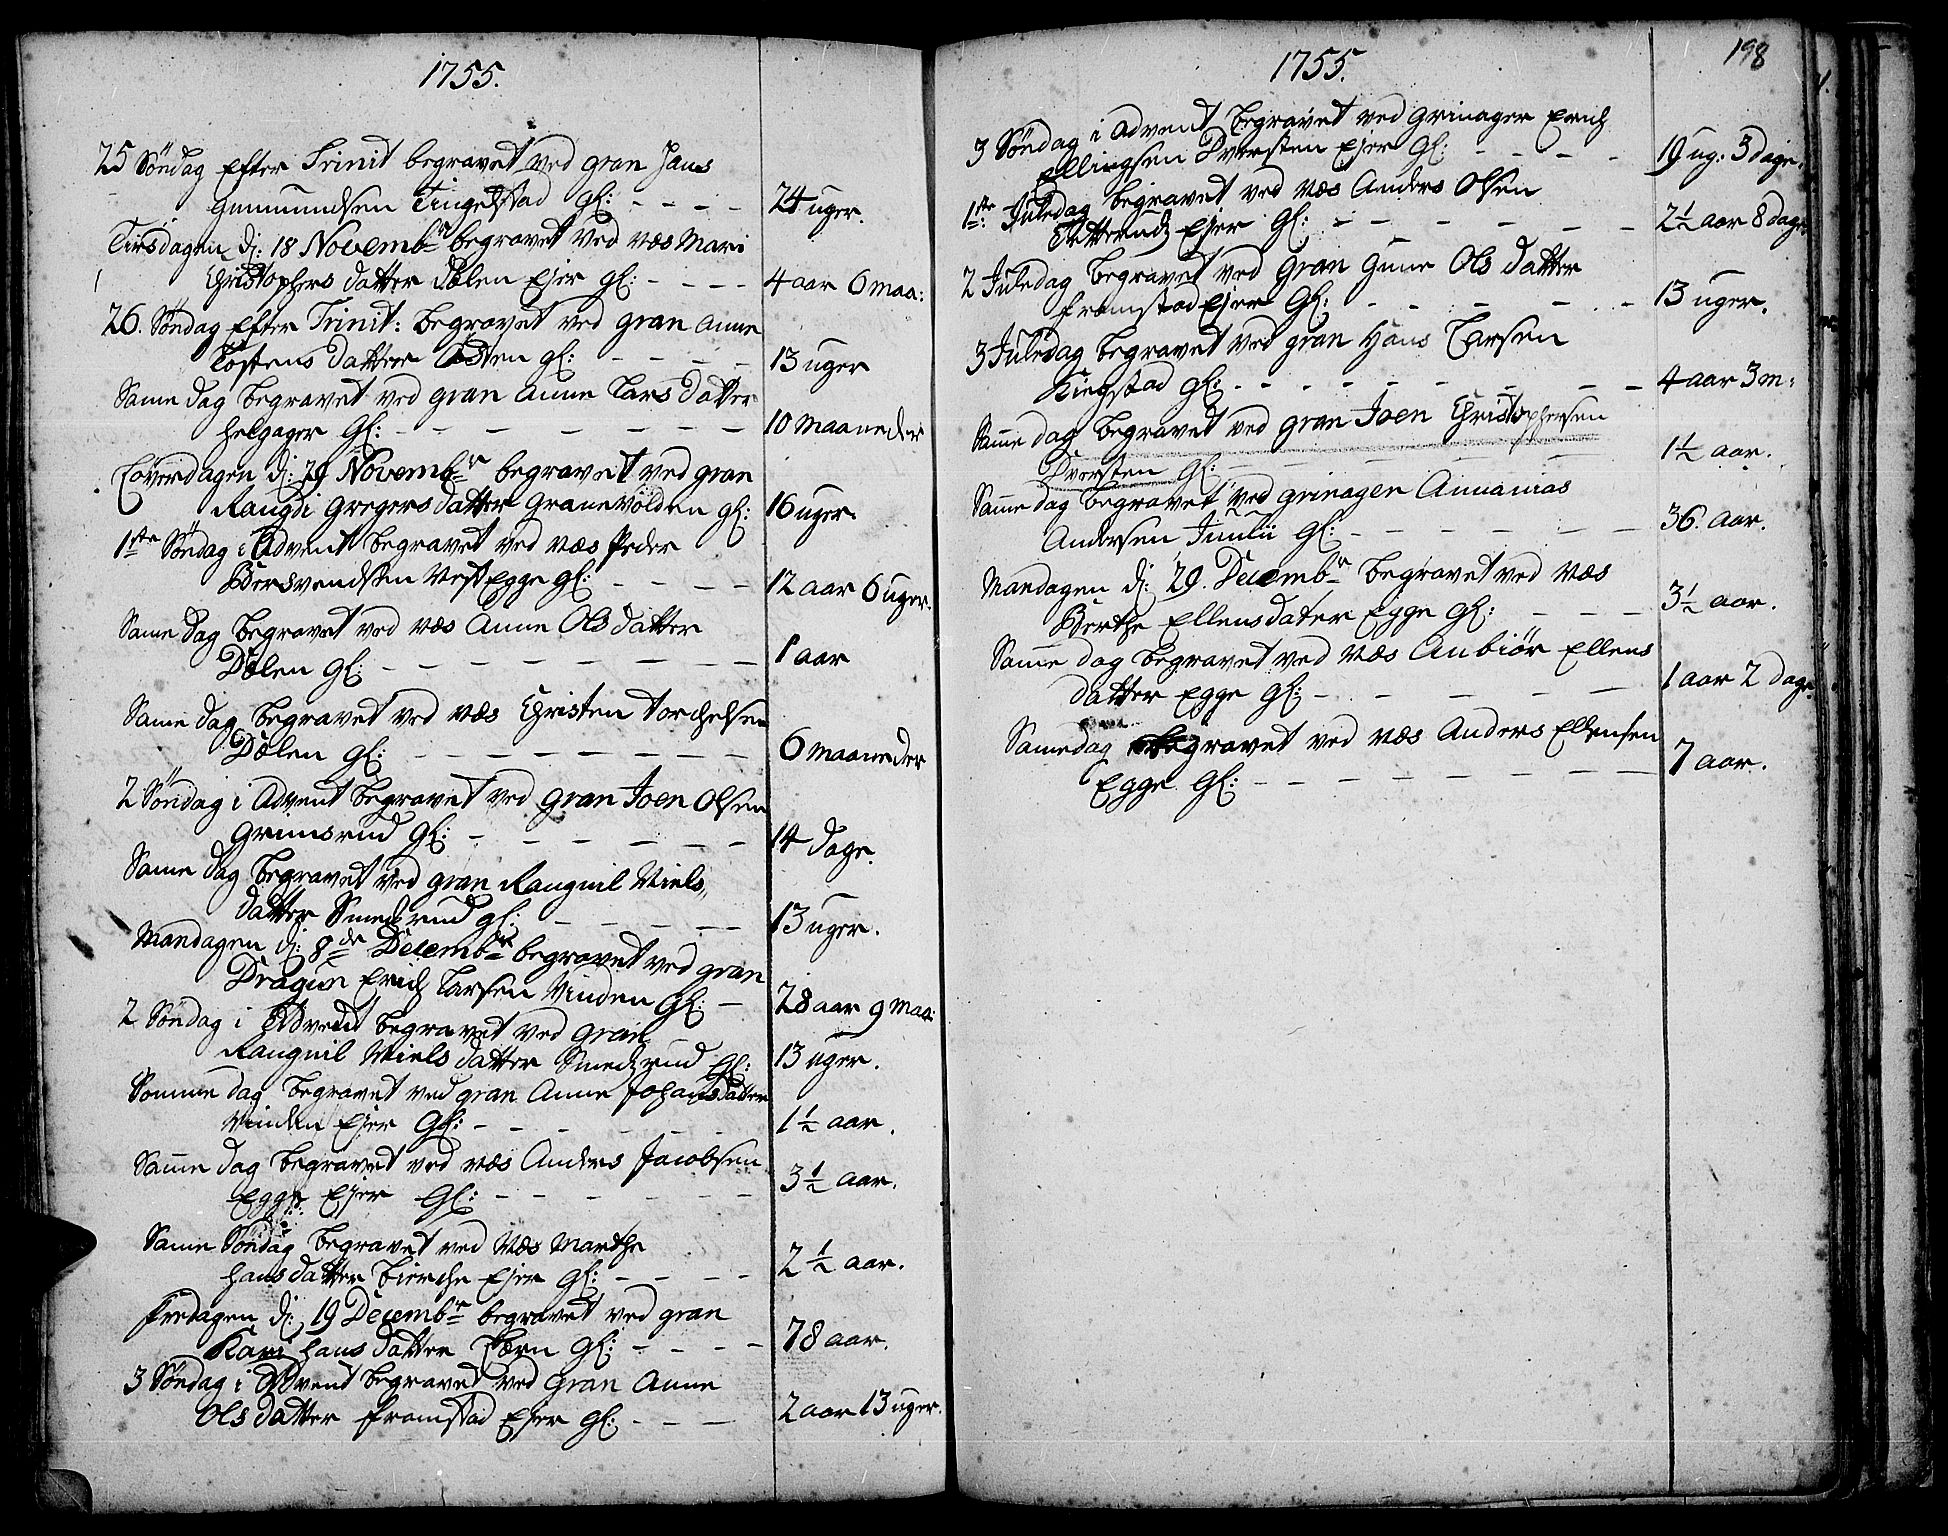 1755.
25 Söndag Efter Trinit begravet ved gran Hans
Gummundsen Tingelstad Gl: 24 uger.
Tirsdagen d: 18 Novembr begravet ved Næs Mari
Christophers datter Dælen Ejer gl: 4 aar 6 maa:
26. Söndag Efter Trinit: begravet ved gran Anne
Tostens datter gl: 13 uger
Samme dag begravet ved gran Anne Lars datter
Helgager Gl: 10 maaneder
Löverdagen d: 29 Novembr begravet ved gran
Rangdi Gregers datter Granevolden gl: 16 uger.
1ste Söndag i Advent begravet ved Næs Peder
Bersvendsen Vest Egge gl: 12 aar 6 uger.
Samme dag begravet ved Næs Anne Ols datter
Dælen gl: 1 aar
Samme dag begravet ved Næs Christen Torchelsen
Dælen gl: 6 maaneder
2 Söndag i Advent begravet ved gran Joen Olsen
Grimsrud gl: 14 dage.
Samme dag begravet ved gran Ranguil Niels
datter Smedzrud gl: 13 uger.
Mandagen d: 8de Decembr begravet ved gran
Dragun Erich Larsen Vinden Gl: 28 aar 9 maa:
2 Söndag i Advent begravet ved gran
Ranguil Niels datter Smedzrud gl: 13 uger.
Somme dag begravet ved gran Anne Johansdatter
Vinden Ejer Gl: 1½ aar.
Samme dag begravet ved Næs Anders Jacobsen
Egge Ejer Gl: 3½ aar.
Samme Söndag begravet ved Næs Marthe
Hans datter Bierche Ejer Gl: 2½ aar.
Fredagen d: 19 Decembr begravet ved gran
Kari Hans datter Gl: 78 aar.
3 Söndag i Advent begravet ved Gran Anne
Ols datter Framstad Ejer gl: 2 aar 13 uger.
1755.
198
3 Söndag i Advent begravet ved Grinager Erich
Ellingsen Dversten Ejer Gl: 19 ug: 3 dage.
1ste: Juledag begravet ved Næs Anders Olsen
Ejer Gl: 2½ aar 8 dage
2 Juledag begravet ved Gran Gune Ols datter
Framstad Ejer Gl: 13 uger.
3 Juledag begravet ved gran Hans Larsen
Kiegstad Gl: 4 aar 3 m:
Samme dag begravet ved gran Joen Christophersen
Dversten Gl: 1½ aar.
Samme dag begravet ved Grinager Annanias
Andersen Juulii Gl: 36. aar.
Mandagen d: 29. Decembr begravet ved Næs
Berthe Ellensdater Egge Gl: 3½ aar.
Samme dag begravet ved Næs Anbiör Ellens
datter Egge Gl: 1 aar 2 dage.
Samedag begravet ved Næs Anders Ellensen
Egge Gl: 7 aar.